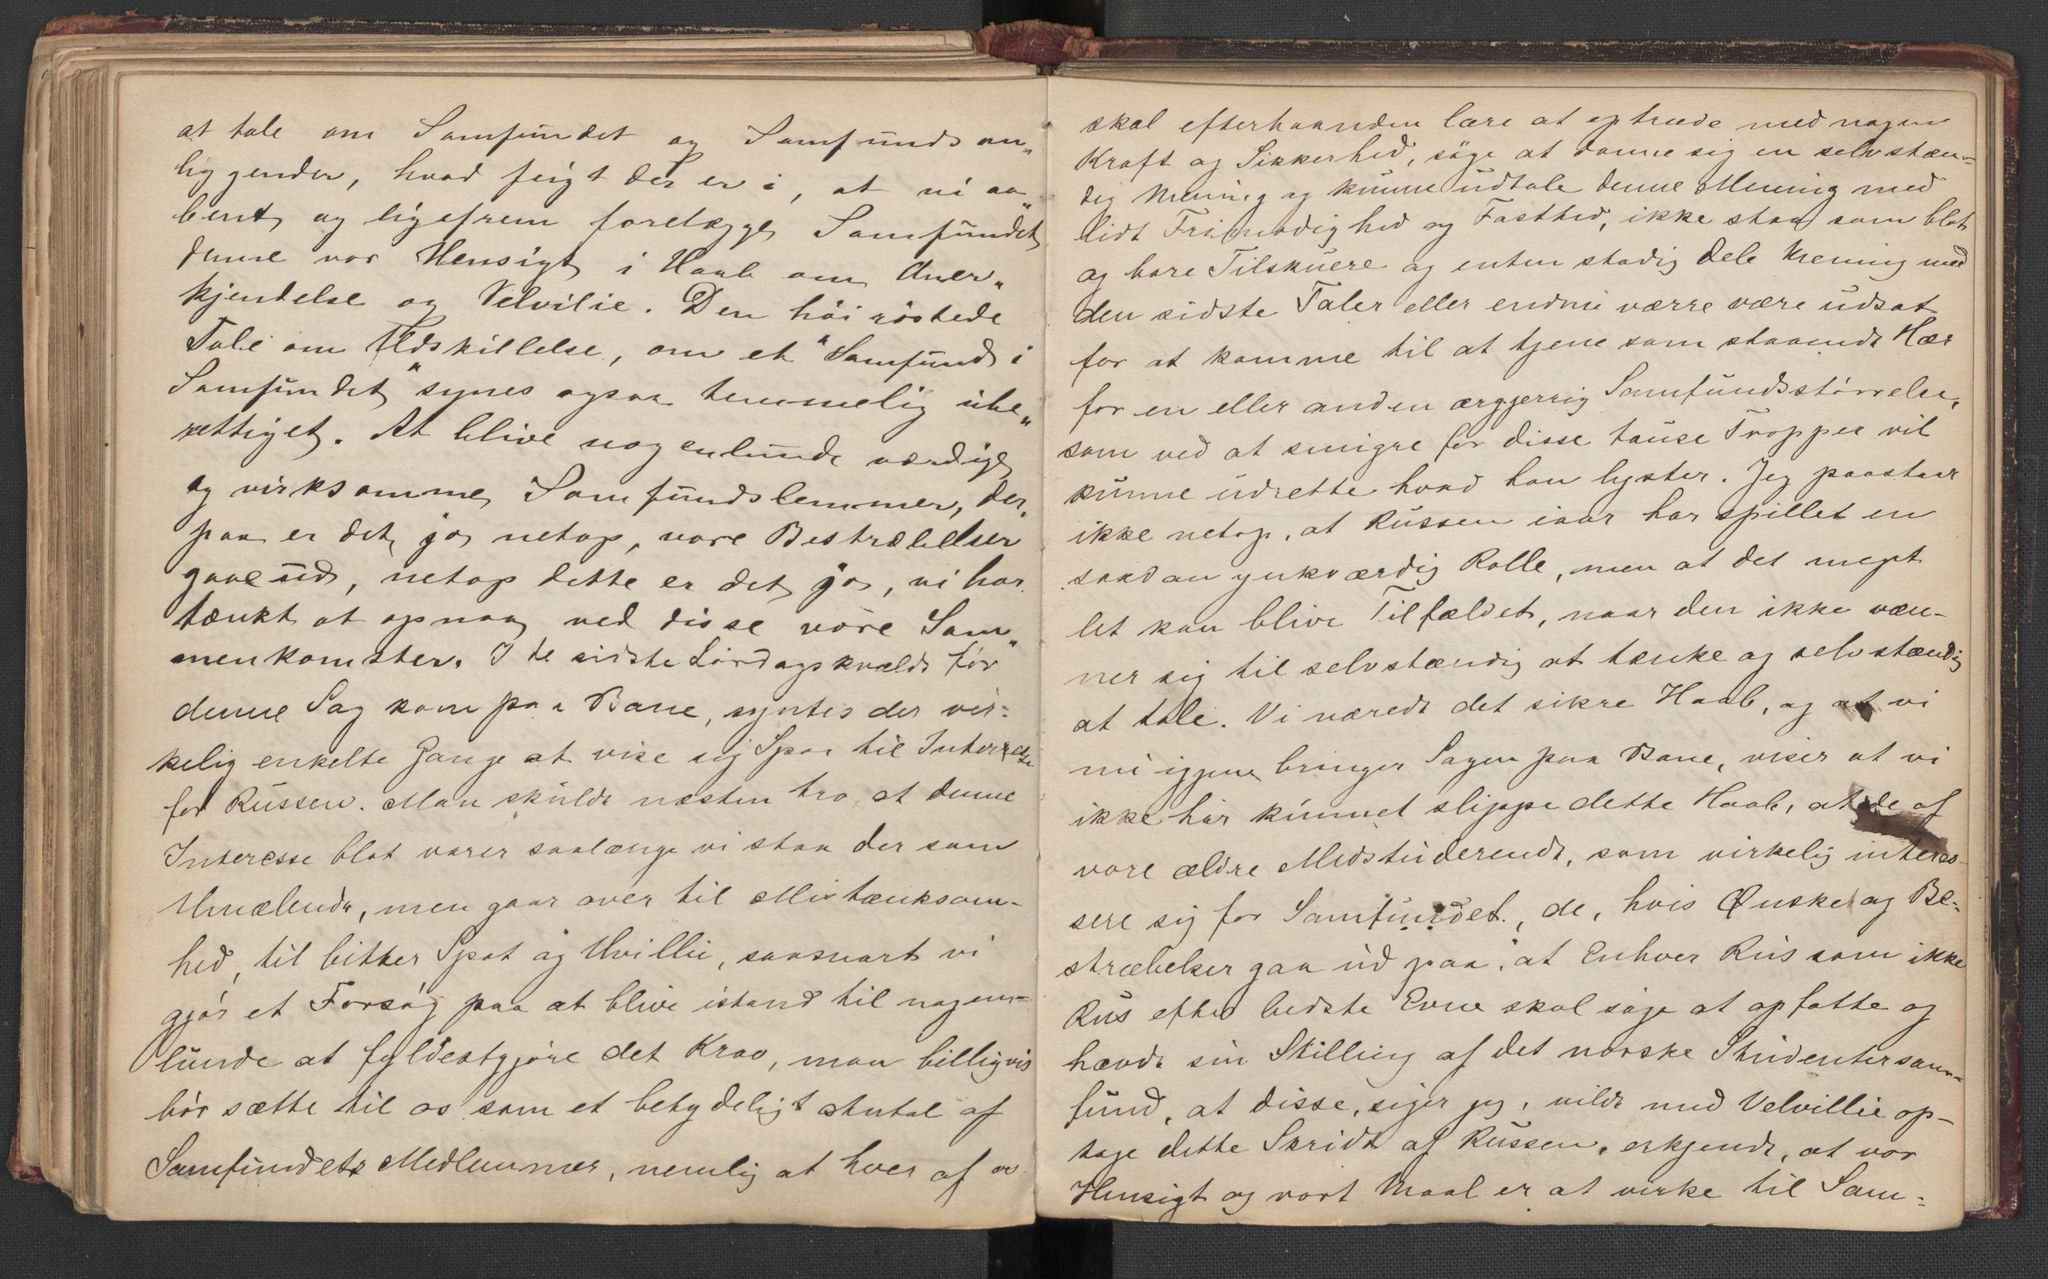 at tale om Samfundet og Samfundsan„
liggender, hvad feigt der er i, at vi aa„
bent og ligefrem forelægge Samfundet
denne vor Hensigt i Haab om Aner„
kjendelse og Velvilie. Den höiröstede
Tale om Udskillelse, om et "Samfund i
Samfundet" synes ogsaa temmelig ube„
rettiget. At blive nogenlunde værdige
og virksomme Samfundslemmer, der„
paa er det jo netop, vore Bestræbelser
gaae ud, netop dette er det jo, vi har
tænkt at opnaa ved disse vore Sam„
menkomster. I de sidste Lørdagskvelde før
denne Sag kom paa Bane, syntes der vir-
kelig enkelte Gange at vise sig Spor til Interesse
for Russen. Man skulde næsten tro at denne
Interesse blot varer saalænge vi staa der som
Umælende, men gaar over til Mistænksom-
hed, til bitter Spot og Uvillie, saasnart vi
gjör et Forsög paa at blive istand til nogen-
lunde at fyldestgjøre det Krav, man billigvis
bör sætte til os som et betydeligt Antal af
Samfundets Medlemmer, nemlig at hver af os
skal efterhaanden lære at optræde med nogen
Kraft og Sikkerhed, söge at danne sig en selvstæn-
dig Mening og kunne udtale denne Mening med
lidt Frimodighed og Fasthed, ikke staa som blot
og bare Tilskuere og enten stadig dele Mening med
den sidste Taler eller endnu værre være udsat
for at komme til at tjene som staaende Hær
for en eller anden ærgjerrig Samfundsstörrelse,
som ved at smigre for disse tause Tropper vil
kunne udrette hvad han lyster. Jeg paastaar
ikke netop, at Russen iaar har spillet en
saadan ynkværdig Rolle, men at det meget
let kan blive Tilfældet, naar den ikke væn-
ner sig til selvstændig at tænke og selvstændig
at tale. Vi nærede det sikre Haab, og at vi
nu igjen bringer Sagen paa Bane, viser at vi
ikke har kunnet slippe dette Haab, at de af
vore ældre Medstuderende, som virkelig interes-
sere sig for Samfundet, de, hvis Ønske og Be-
stræbelser gaa ud paa, at Enhver Rus som ikke
Rus efter bedste Evne skal söge at opfatte og
hævde sin Stilling af det norske Studentersam-
fund, at disse, siger jeg, vilde med Velvillie op-
tage dette Skridt af Russen, erkjende, at vor
Hensigt og vort Maal er at virke til Sam-